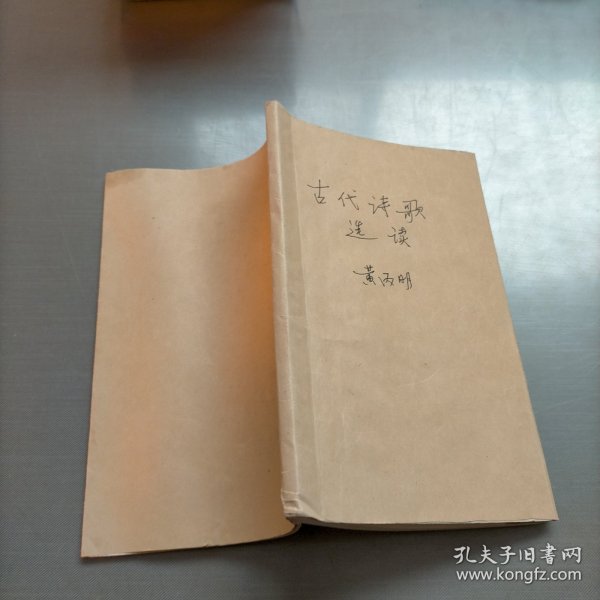 古代诗歌
选读
黄丙明
孔夫子旧书网
www.kongfz.com